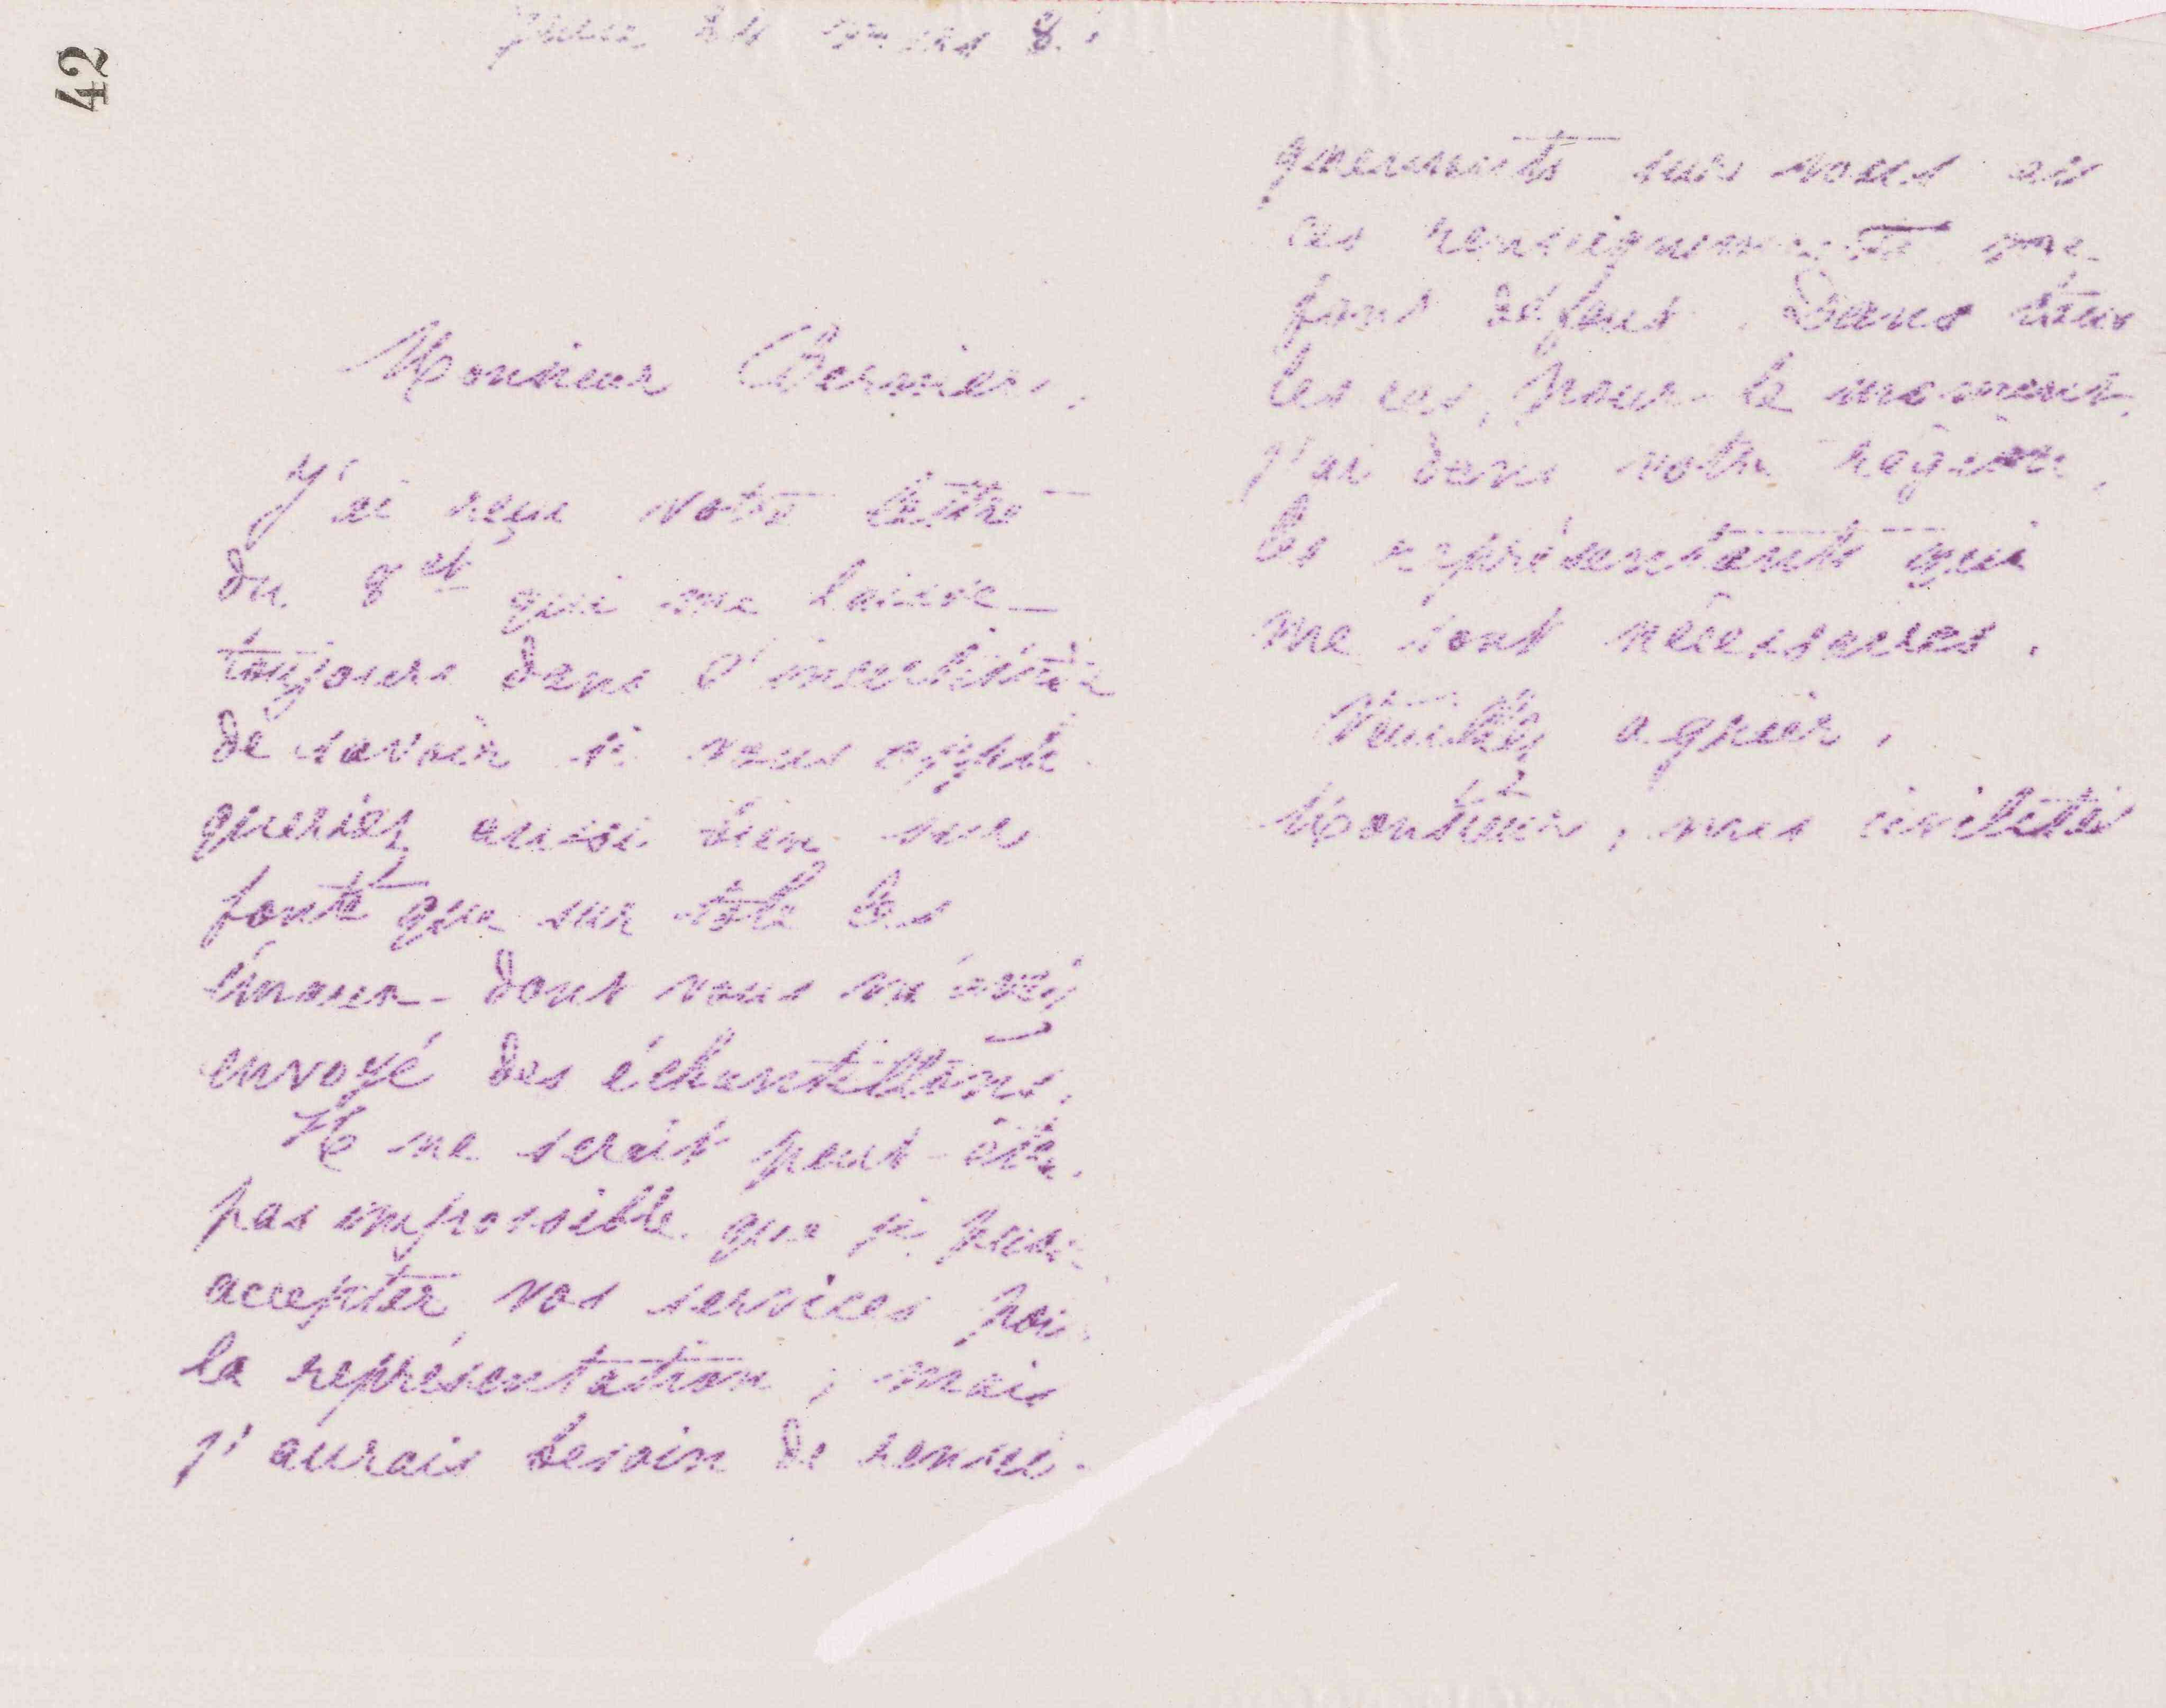 42
mars 8
Monsieur Bernier,
J'ai reçu votre lettre
du 8 ct qui me laisse
toujours dans l'incertitude
de savoir si vous appli
queriez aussi bien sur
fonte que sur tole les
émaux dont vous m'avez
envoyé des échantillons.
Il ne serait peut-être
pas impossible que je puisse
accepter vos services pour
la représentation ; mais
j'aurais besoin de rensei-
gnements sur vous et
ces renseignements me
font défaut. Dans tous
les cas, pour le moment,
j'ai dans votre région,
les représentants qui
me sont nécessaires.
Veuillez agréer,
Monsieur, mes civilités